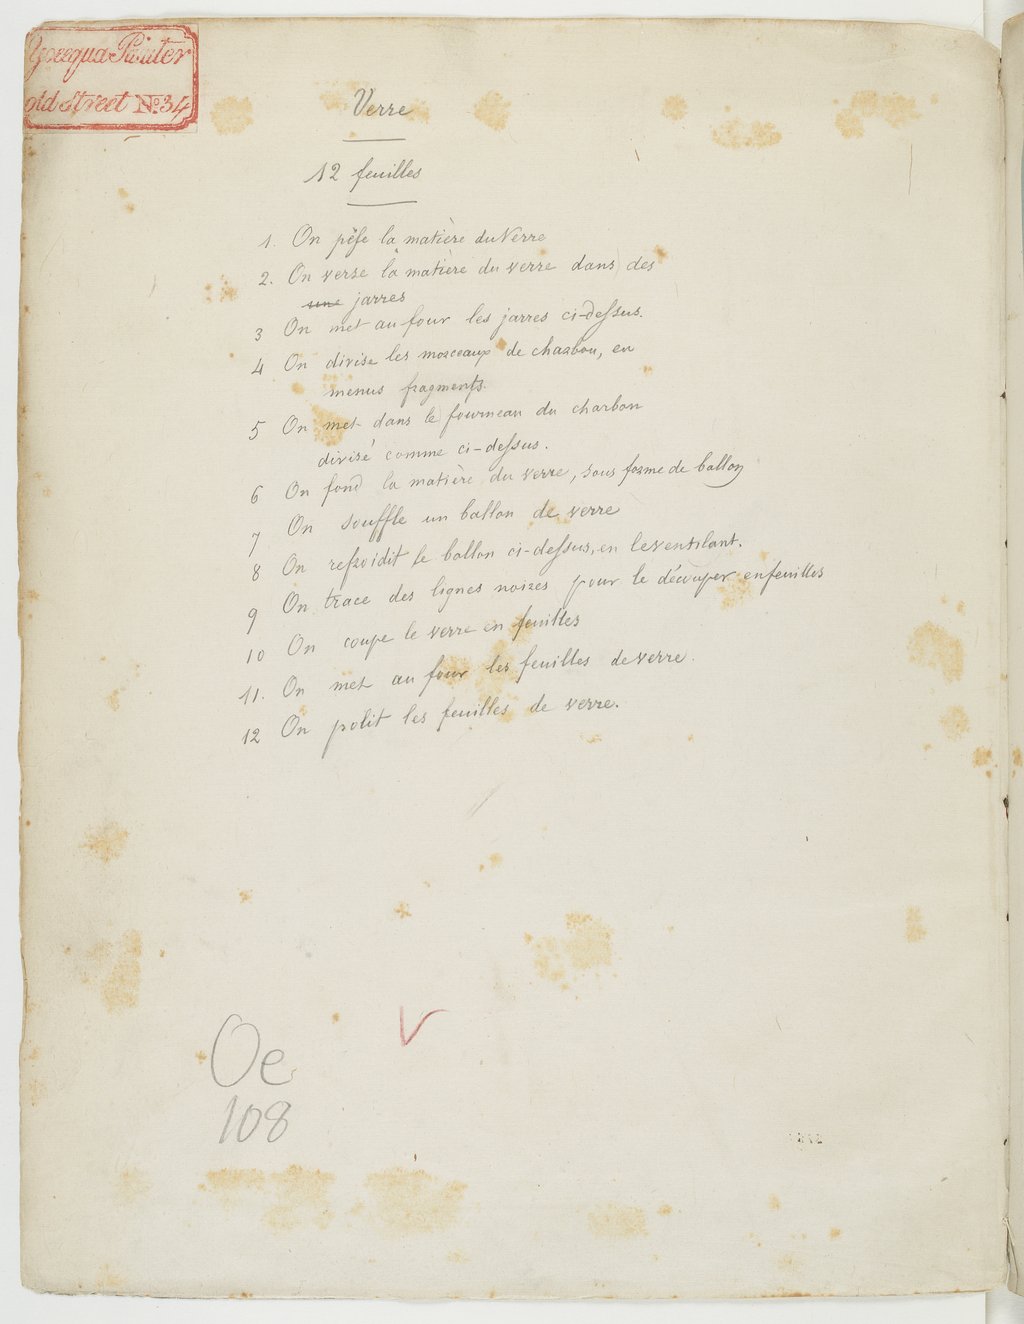 Yoeequa Painter
old Street No. 34
Verre
12 feuilles
1. On pèse la matière du Verre
2. On verse la matière du verre dans des
une jarres
3 On met au four les jarres ci-dessus.
4 On divise les morceaux de charbon, en
menus fragments.
5 On met dans le fourneau du charbon
divisé comme ci-dessus.
6 On fond la matière du verre, sous forme de ballon
7 On souffle un ballon de verre
8 On refroidit le ballon ci-dessus, en le ventilant.
9 On trace des lignes noires pour le découper en feuilles
10 On coupe le verre en feuilles
11. On met au four les feuilles de verre.
12 On polit les feuilles de verre.
V
Oe
108